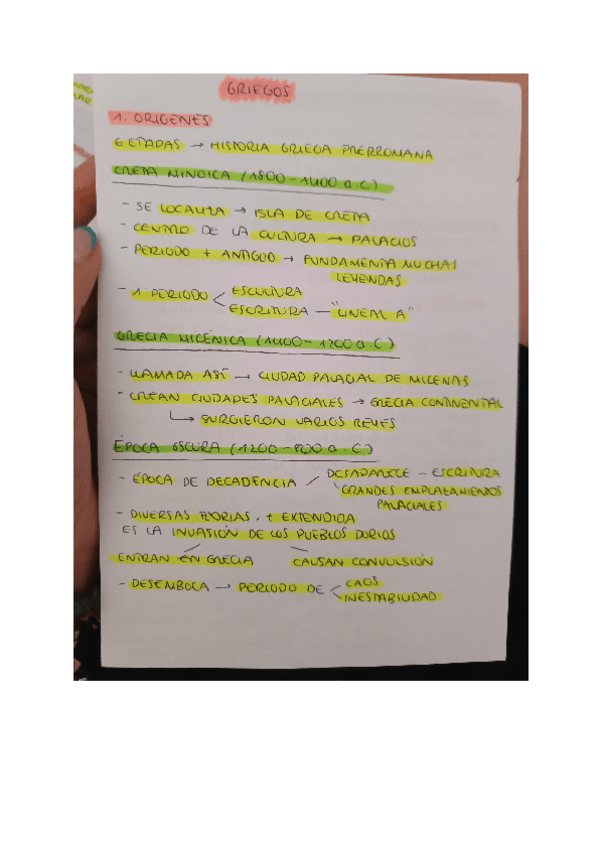 GRIEGOS
1. ORIGENES
6 ETAPAS → HISTORIA GRIEGA PRERROMANA
CRETA MINOICA (1800-1400 a.C)
- SE LOCALIZA → ISLA DE CRETA
- CENTRO DE LA CULTURA → PALACIOS
- PERIODO + ANTIGUO → FUNDAMENTA MUCHAS
LEYENDAS
- 1. PERIODO < ESCULTURA
ESCRITURA - "LINEAL A"
GRECIA MICÉNICA (1400-1200 a.C)
- LLAMADA ASÍ → CIUDAD PALACIAL DE MICENAS
- CREAN CIUDADES PALACIALES → GRECIA CONTINENTAL
↳ SURGIERON VARIOS REYES
ÉPOCA OSCURA (1200-800 a.C)
- ÉPOCA DE DECADENCIA / DESAPARECE - ESCRITURA
GRANDES EMPLAZAMIENTOS
PALACIALES
- DIVERSAS TEORIAS, + EXTENDIDA
ES LA INVASIÓN DE LOS PUEBLOS DORIOS
ENTRAN EN GRECIA CAUSAN CONVULSIÓN
- DESENBOCA → PERIODO DE < CAOS
INESTABILIDAD